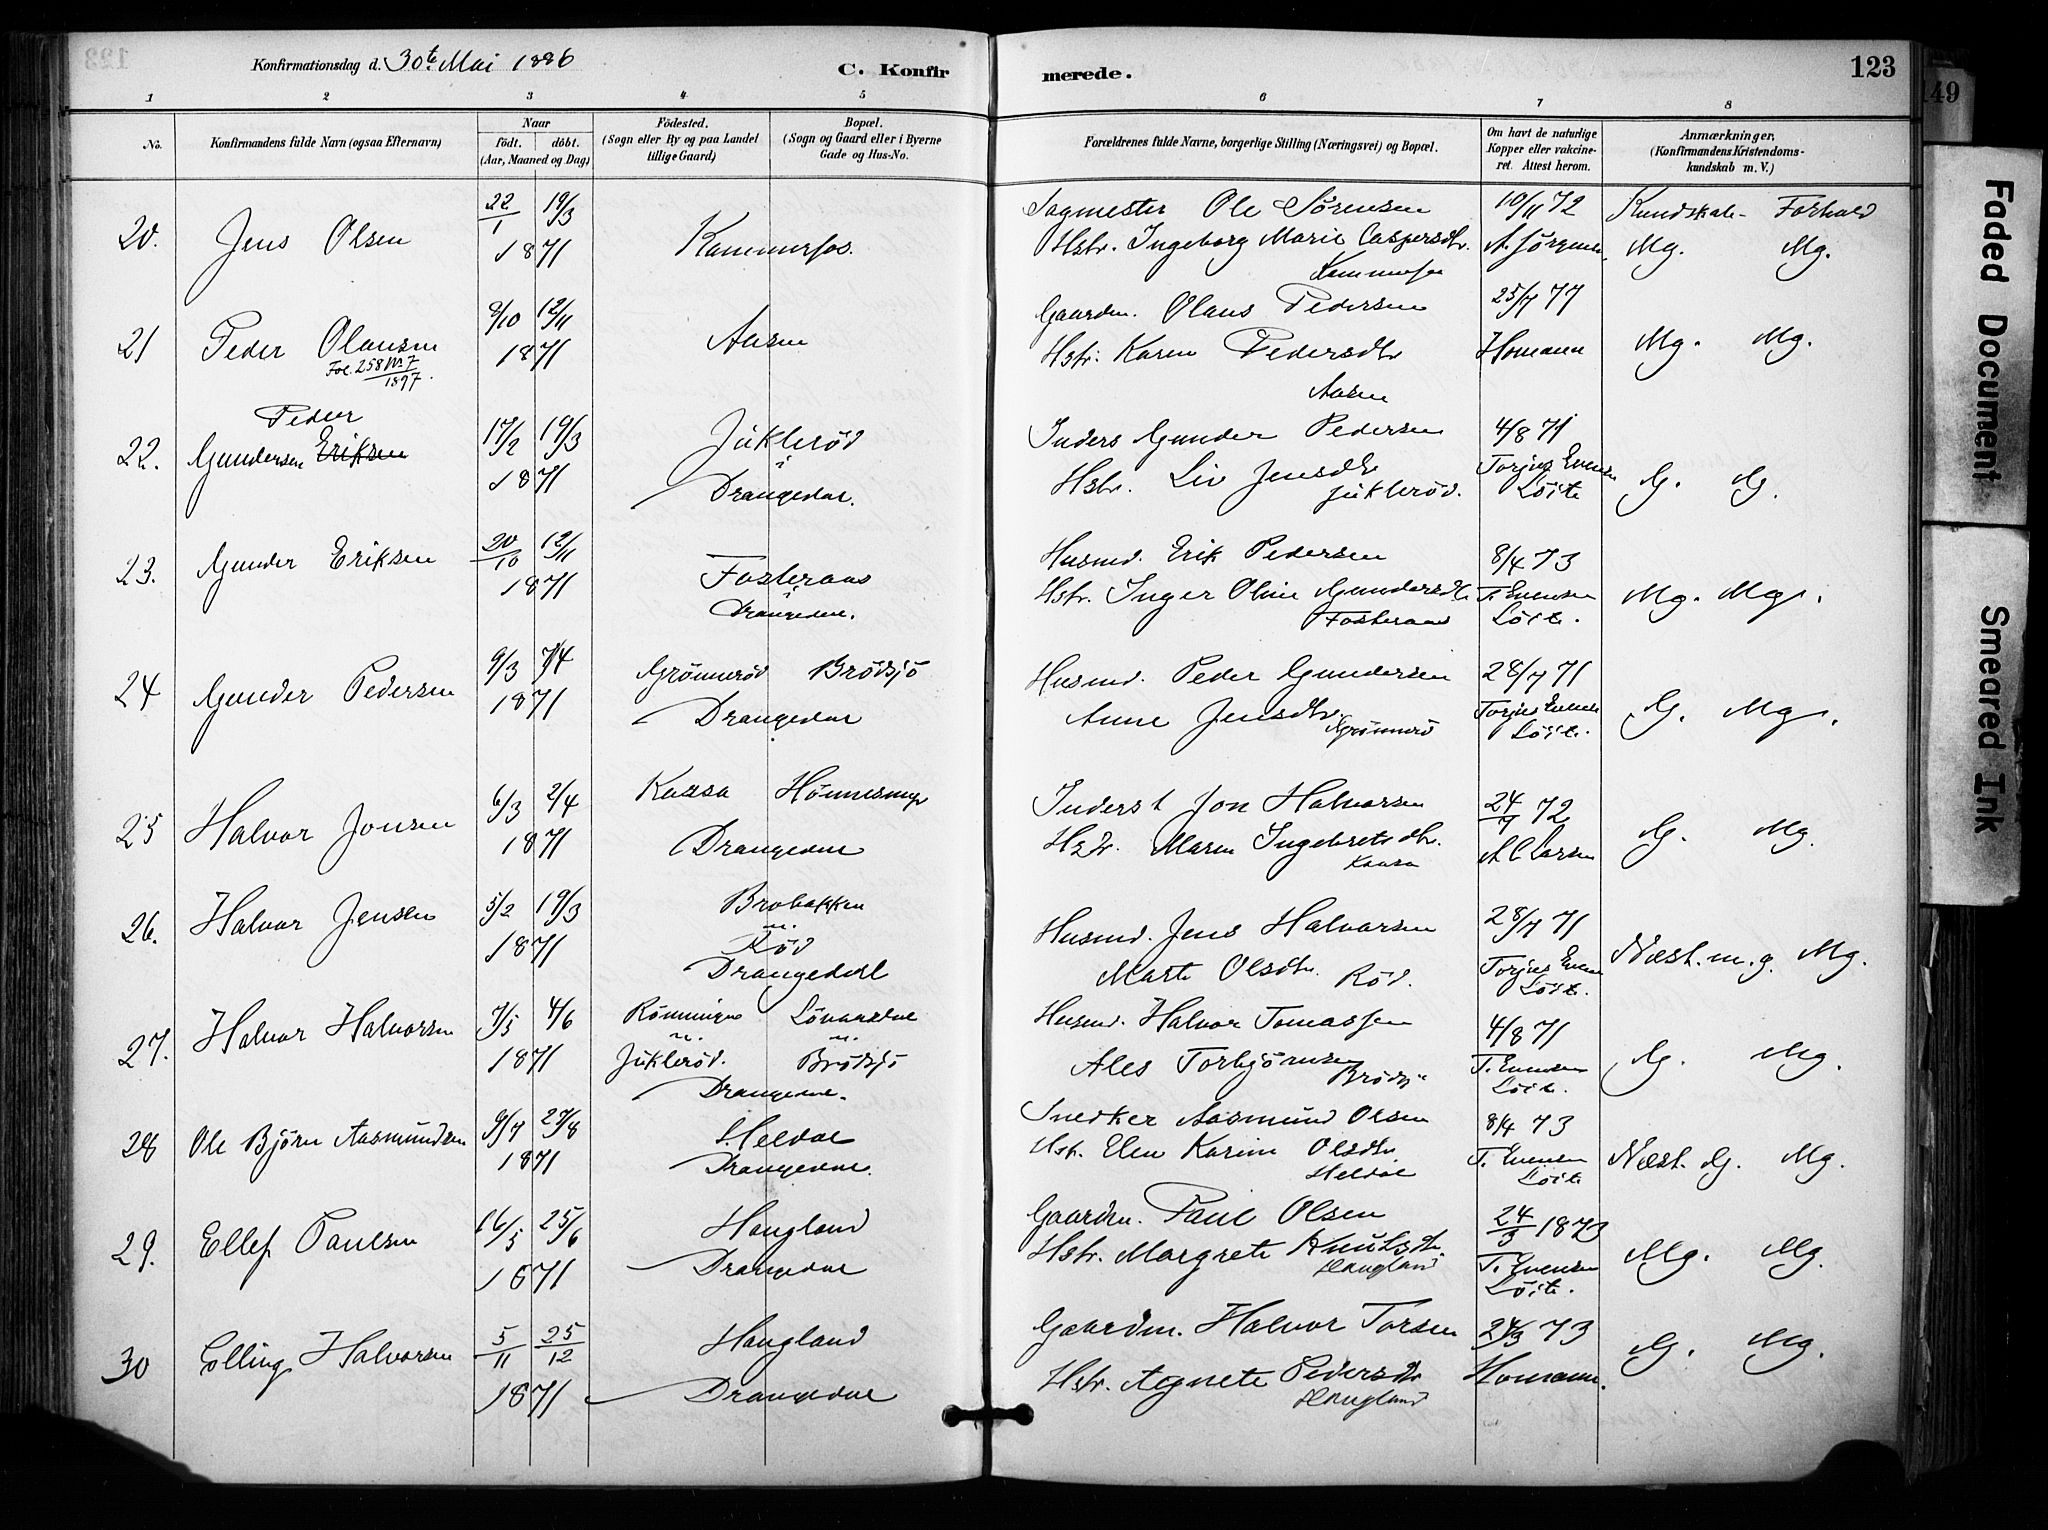 Konfirmationsdag d. 30te Mai 1886
C. Konfirmerede.
123
1 2 3 4 5 6 7 8
No. Konfirmandens fulde Navn (ogsaa Efternavn) Naar født. døbt. (Aar, Maaned og Dag) Fødested. (Sogn eller By og paa Landet tillige Gaard) Bopæl. (Sogn og Gaard eller i Byerne Gade og Hus-No. Forældrenes fulde Navne, borgerlige Stilling (Næringsvei) og Bopæl. Om havt de naturlige Kopper eller vakcineret. Attest herom. Anmærkninger, (Konfirmandens Kristendomskundskab m. V.)
Sagmester Ole Sørensen 10/11 72 Kundskab- Forhold
20. Jens Olsen 22/1 19/3 1871 Kammerfos. Hstr. Ingeborg Marie Caspersdtr. Mg. Mg.
Gaardm. Olaus Pedersen 25/7 77
21 Peder Olausen 12/11 1871 Aasen Hstr. Karen Pedersdtr Homann Mg. Mg.
Fol. 258 No 7 1897.
Aasen
Peder
22. Gundersen Eriksen 17/2 19/3 1871 Juklerød i Drangedal. Inders Gunder Pedersen 4/8 71
Hstr. Liv Jensdtr Juklerød. Torjus Evensen Löite G. G.
23. Gunder Eriksen 20/10 12/11 1871 Fosteraas i Drangedal. Husmd. Erik Pedersen 8/4 73
Hstr. Inger Oline Gundersdtr Fosteraas T. Evensen Löite. Mg. Mg.
24 Gunder Pedersen 9/3 7/4 1871 Grönnerød Brödsjö Drangedal Husmd. Peder Gundersen 28/7 71
Anne Jensdtr. Grönnerö Torjus Evens Löite. G. Mg.
25 Halvor Jonsen 6/3 2/4 1871 Kaasa Drangedal Inderst Jon Halvorsen 24/7 72
Hstr. Maren Ingebretsdtr. Kaasa A C Larsen G. Mg.
26. Halvor Jensen 5/2 19/3 1871 Brobakken u. Röd Drangedal Husmd. Jens Halvorsen 28/7 71
Marte Olsdtr. Röd. Torjus Evens Löite. Næst. m. g. Mg.
27. Halvor Halvorsen 7/5 4/6 1871 Rönningen u. Juklerød. Brödsjö Drangedal. Husmd. Halvor Tomassen 4/8 71
Ales Torbjörnsen Brödsjö T. Evensen Löite. G. Mg.
28 Ole Björn Aasmundsen 9/7 27/8 1871 Heldal Drangedal. Snedker Aasmund Olsen 8/4 73
Hstr. Elen Karine Olsdtr. Heldal T. Evensen Löite Næst. G. Mg.
29. Ellef Paulsen 16/5 25/6 1871 Haugland Drangedal Gaardm. Paul Olsen 24/3 1873
Hstr. Margrete Knutsdtr. Haugland T. Evensen Löite. Mg. Mg.
30 Elling Halvorsen 5/11 25/12 1871 Haugland Drangedal Gaardm. Halvor Torsen 24/3 73
Hstr. Agnete Pedersdtr Haugland Homann. G. Mg.
149
Faded Document
Smeared Ink